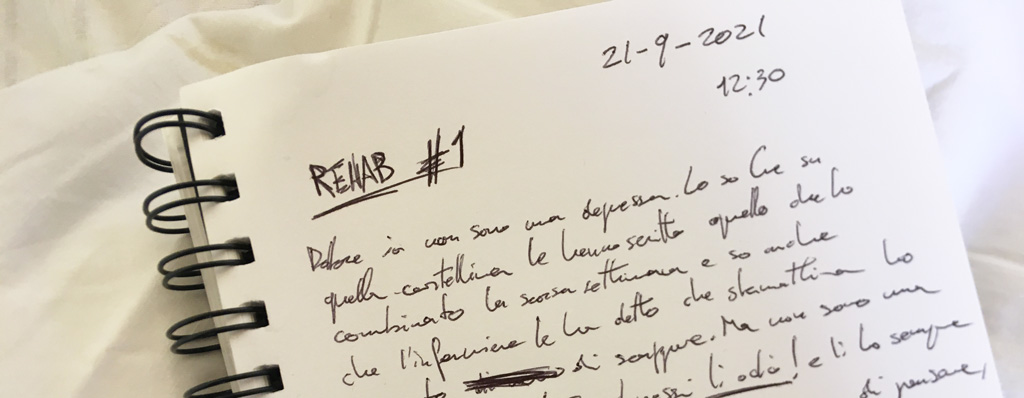 21-9-2021
12:30
REHAB #1
Dottore io non sono una depressa. Lo so che su
quella cartellina le hanno scritto quello che ho
combinato la scorsa settimana e so anche
che l'infermiera le ha detto che stamattina ho
di scappare. Ma non sono una
li odio! e li ho sempre
di pensare,